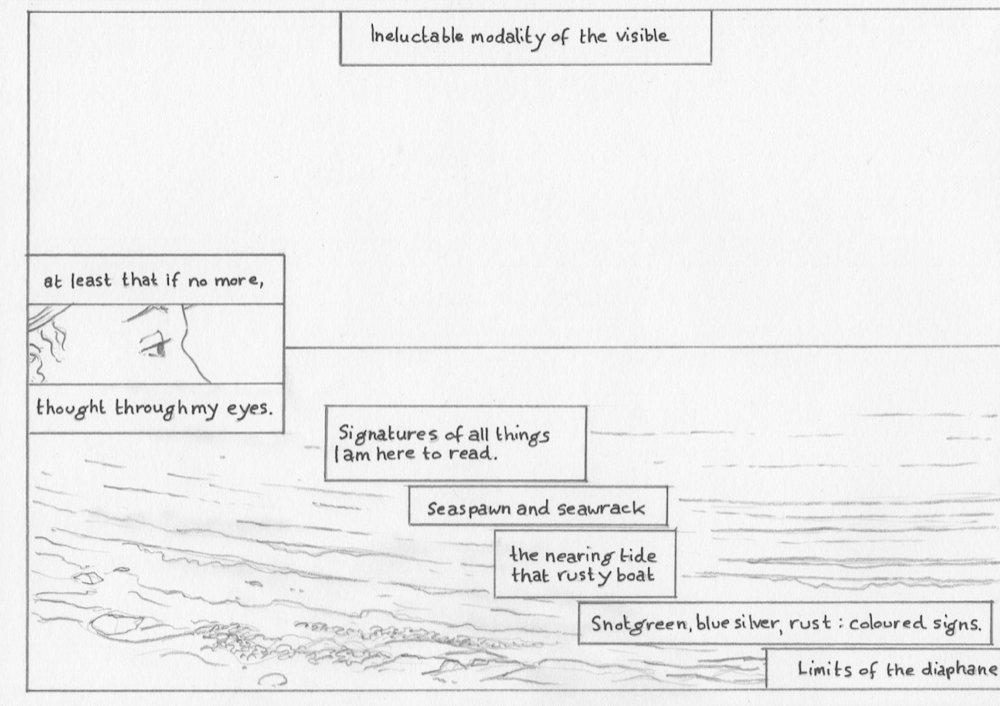 Ineluctable modality of the visible
at least that if no more,
thought through my eyes.
Signatures of all things
I am here to read.
Seaspawn and seawrack
the nearing tide
that rusty boat
Snotgreen, blue silver, rust : coloured signs.
Limits of the diaphane